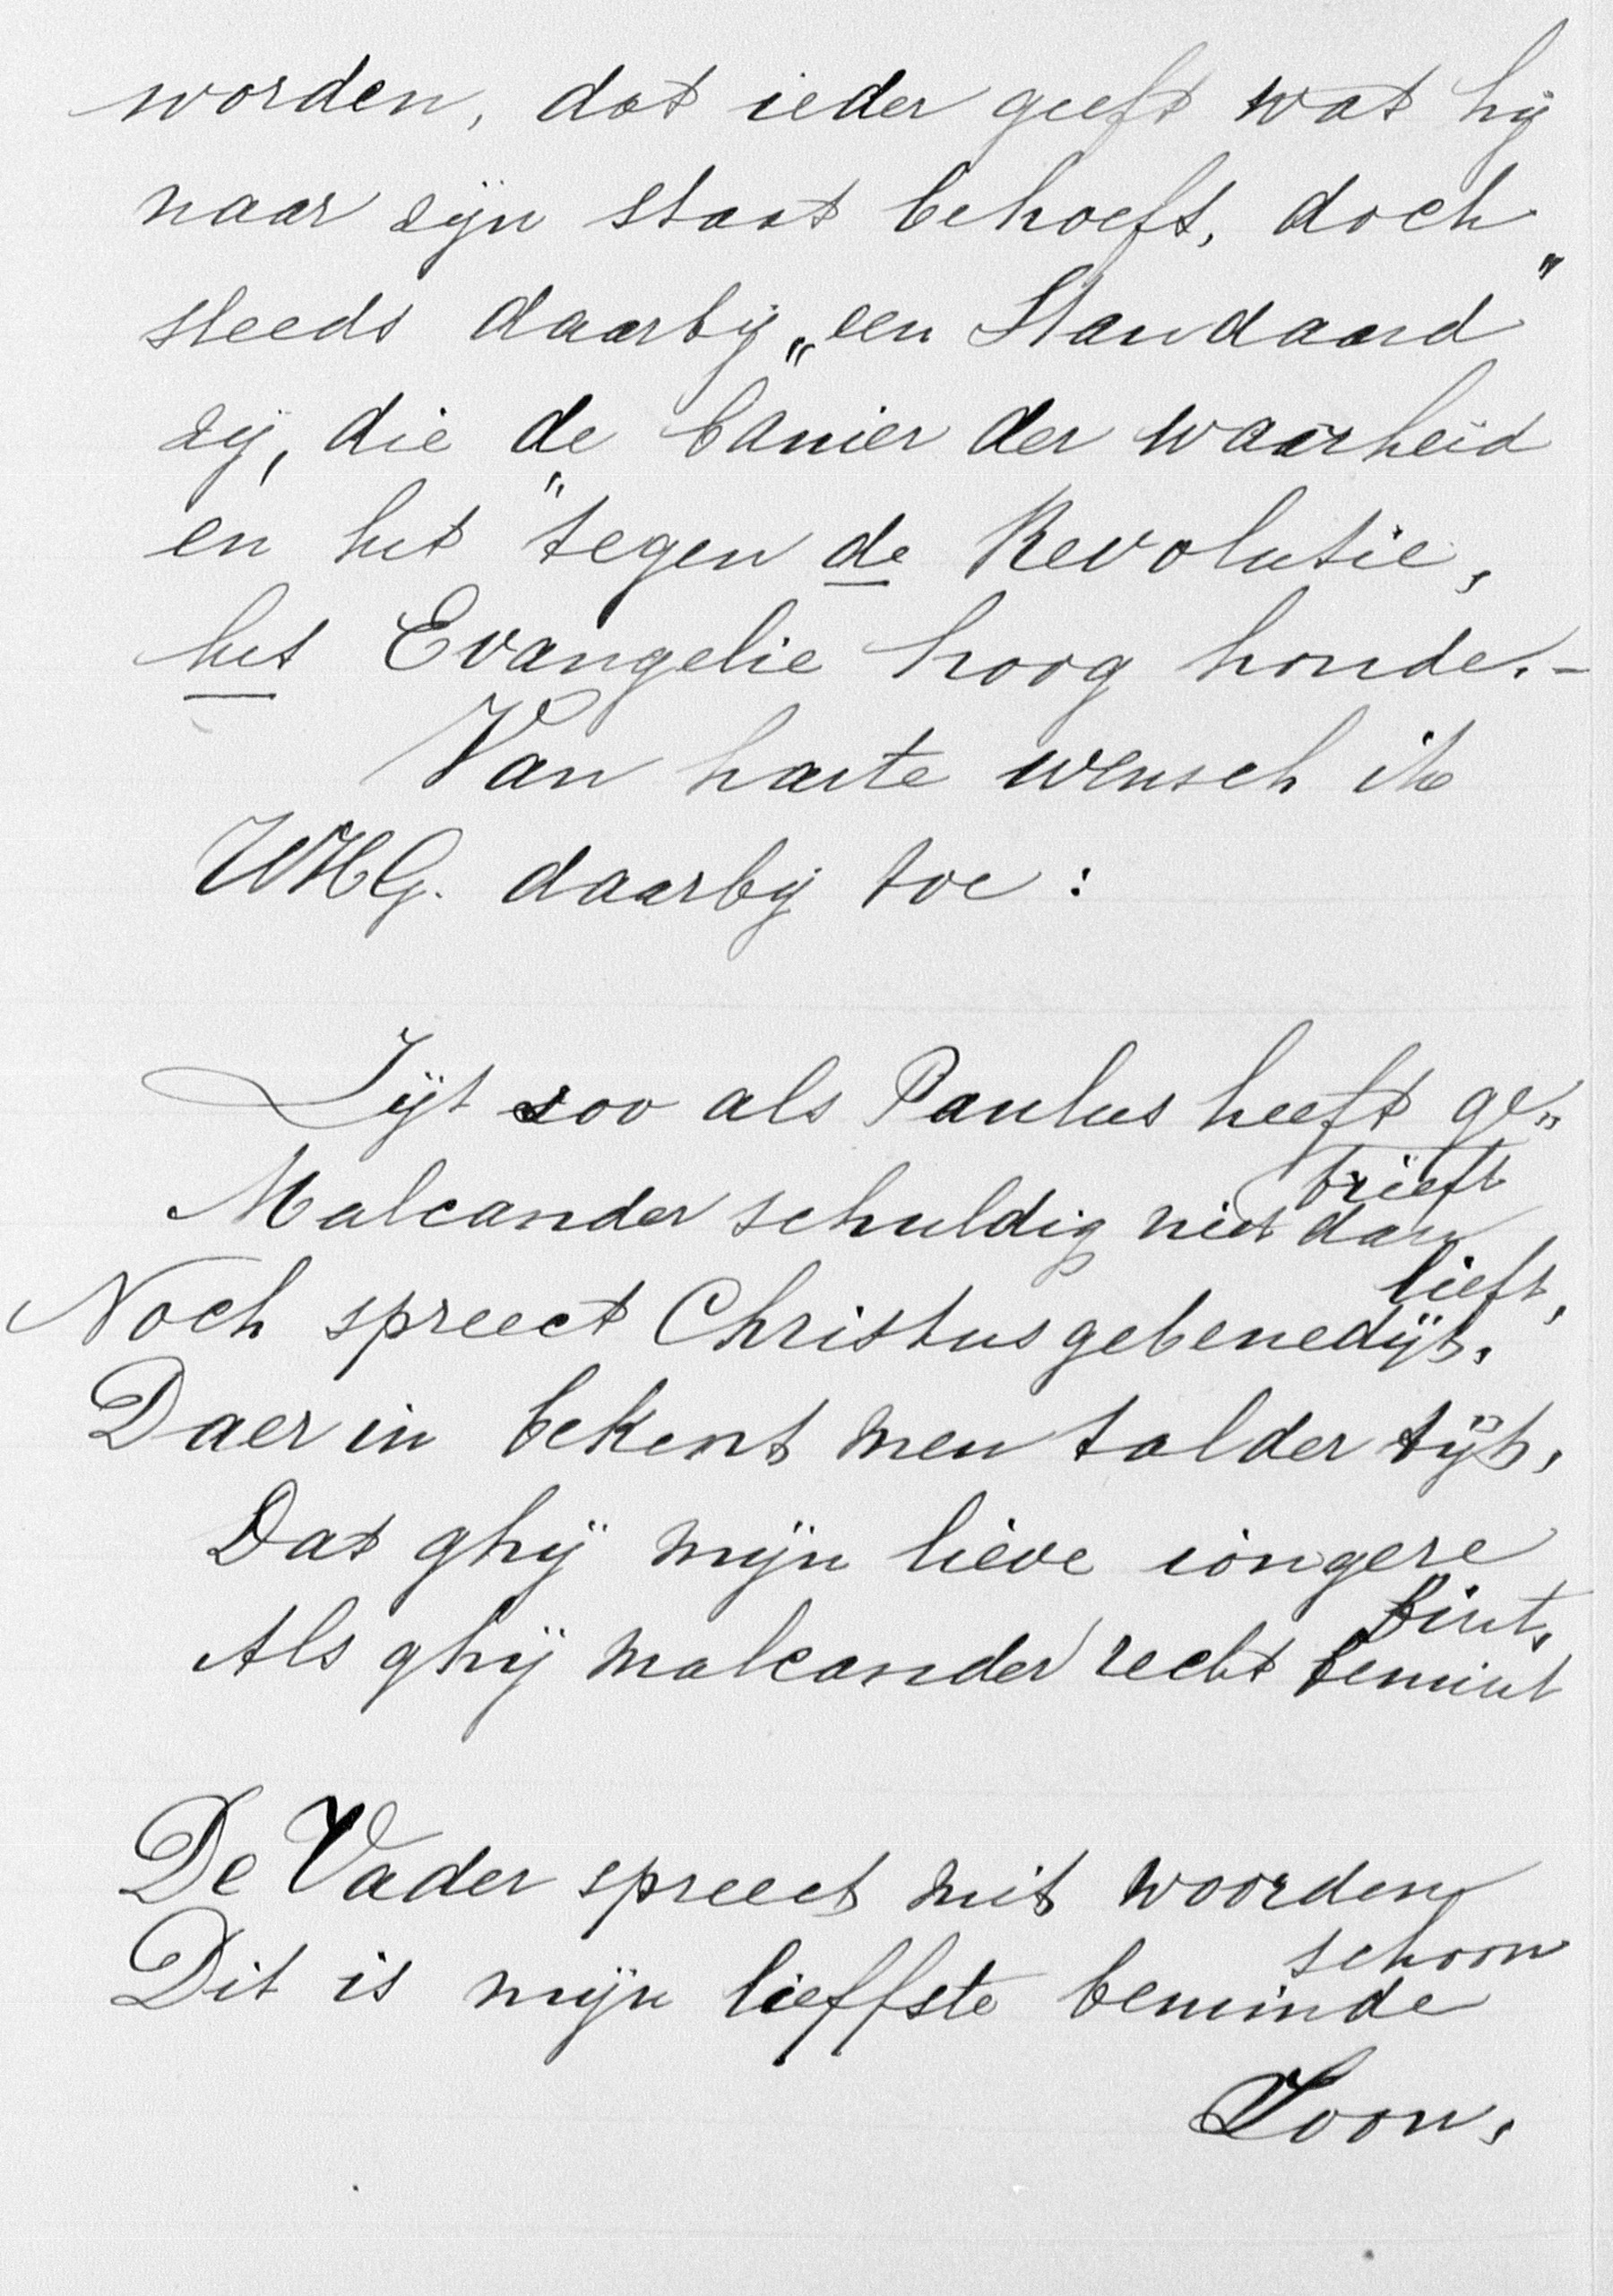 worden, dat ieder geeft wat hij
naar zijn staat behoeft, doch
steeds daarbij „een Standaard"
zij, die de banier der waarheid
en het "tegen de Revolutie,
het Evangelie" hoog houde.-
Van harte wensch ik
UWHG. daarbij toe:
Zijt zoo als Paulus heeft ge„
brieft
Malcander schuldig niet dan
lieft,
Noch spreect Christus gebenedijt,
Daer in bekent men talder tijt,
Dat ghij mijn lieve iongere
bint,
Als ghij malcander recht bemint
De Vader spreect mit woorden
schoon
Dit is mijn lieffste beminde
Zoon,